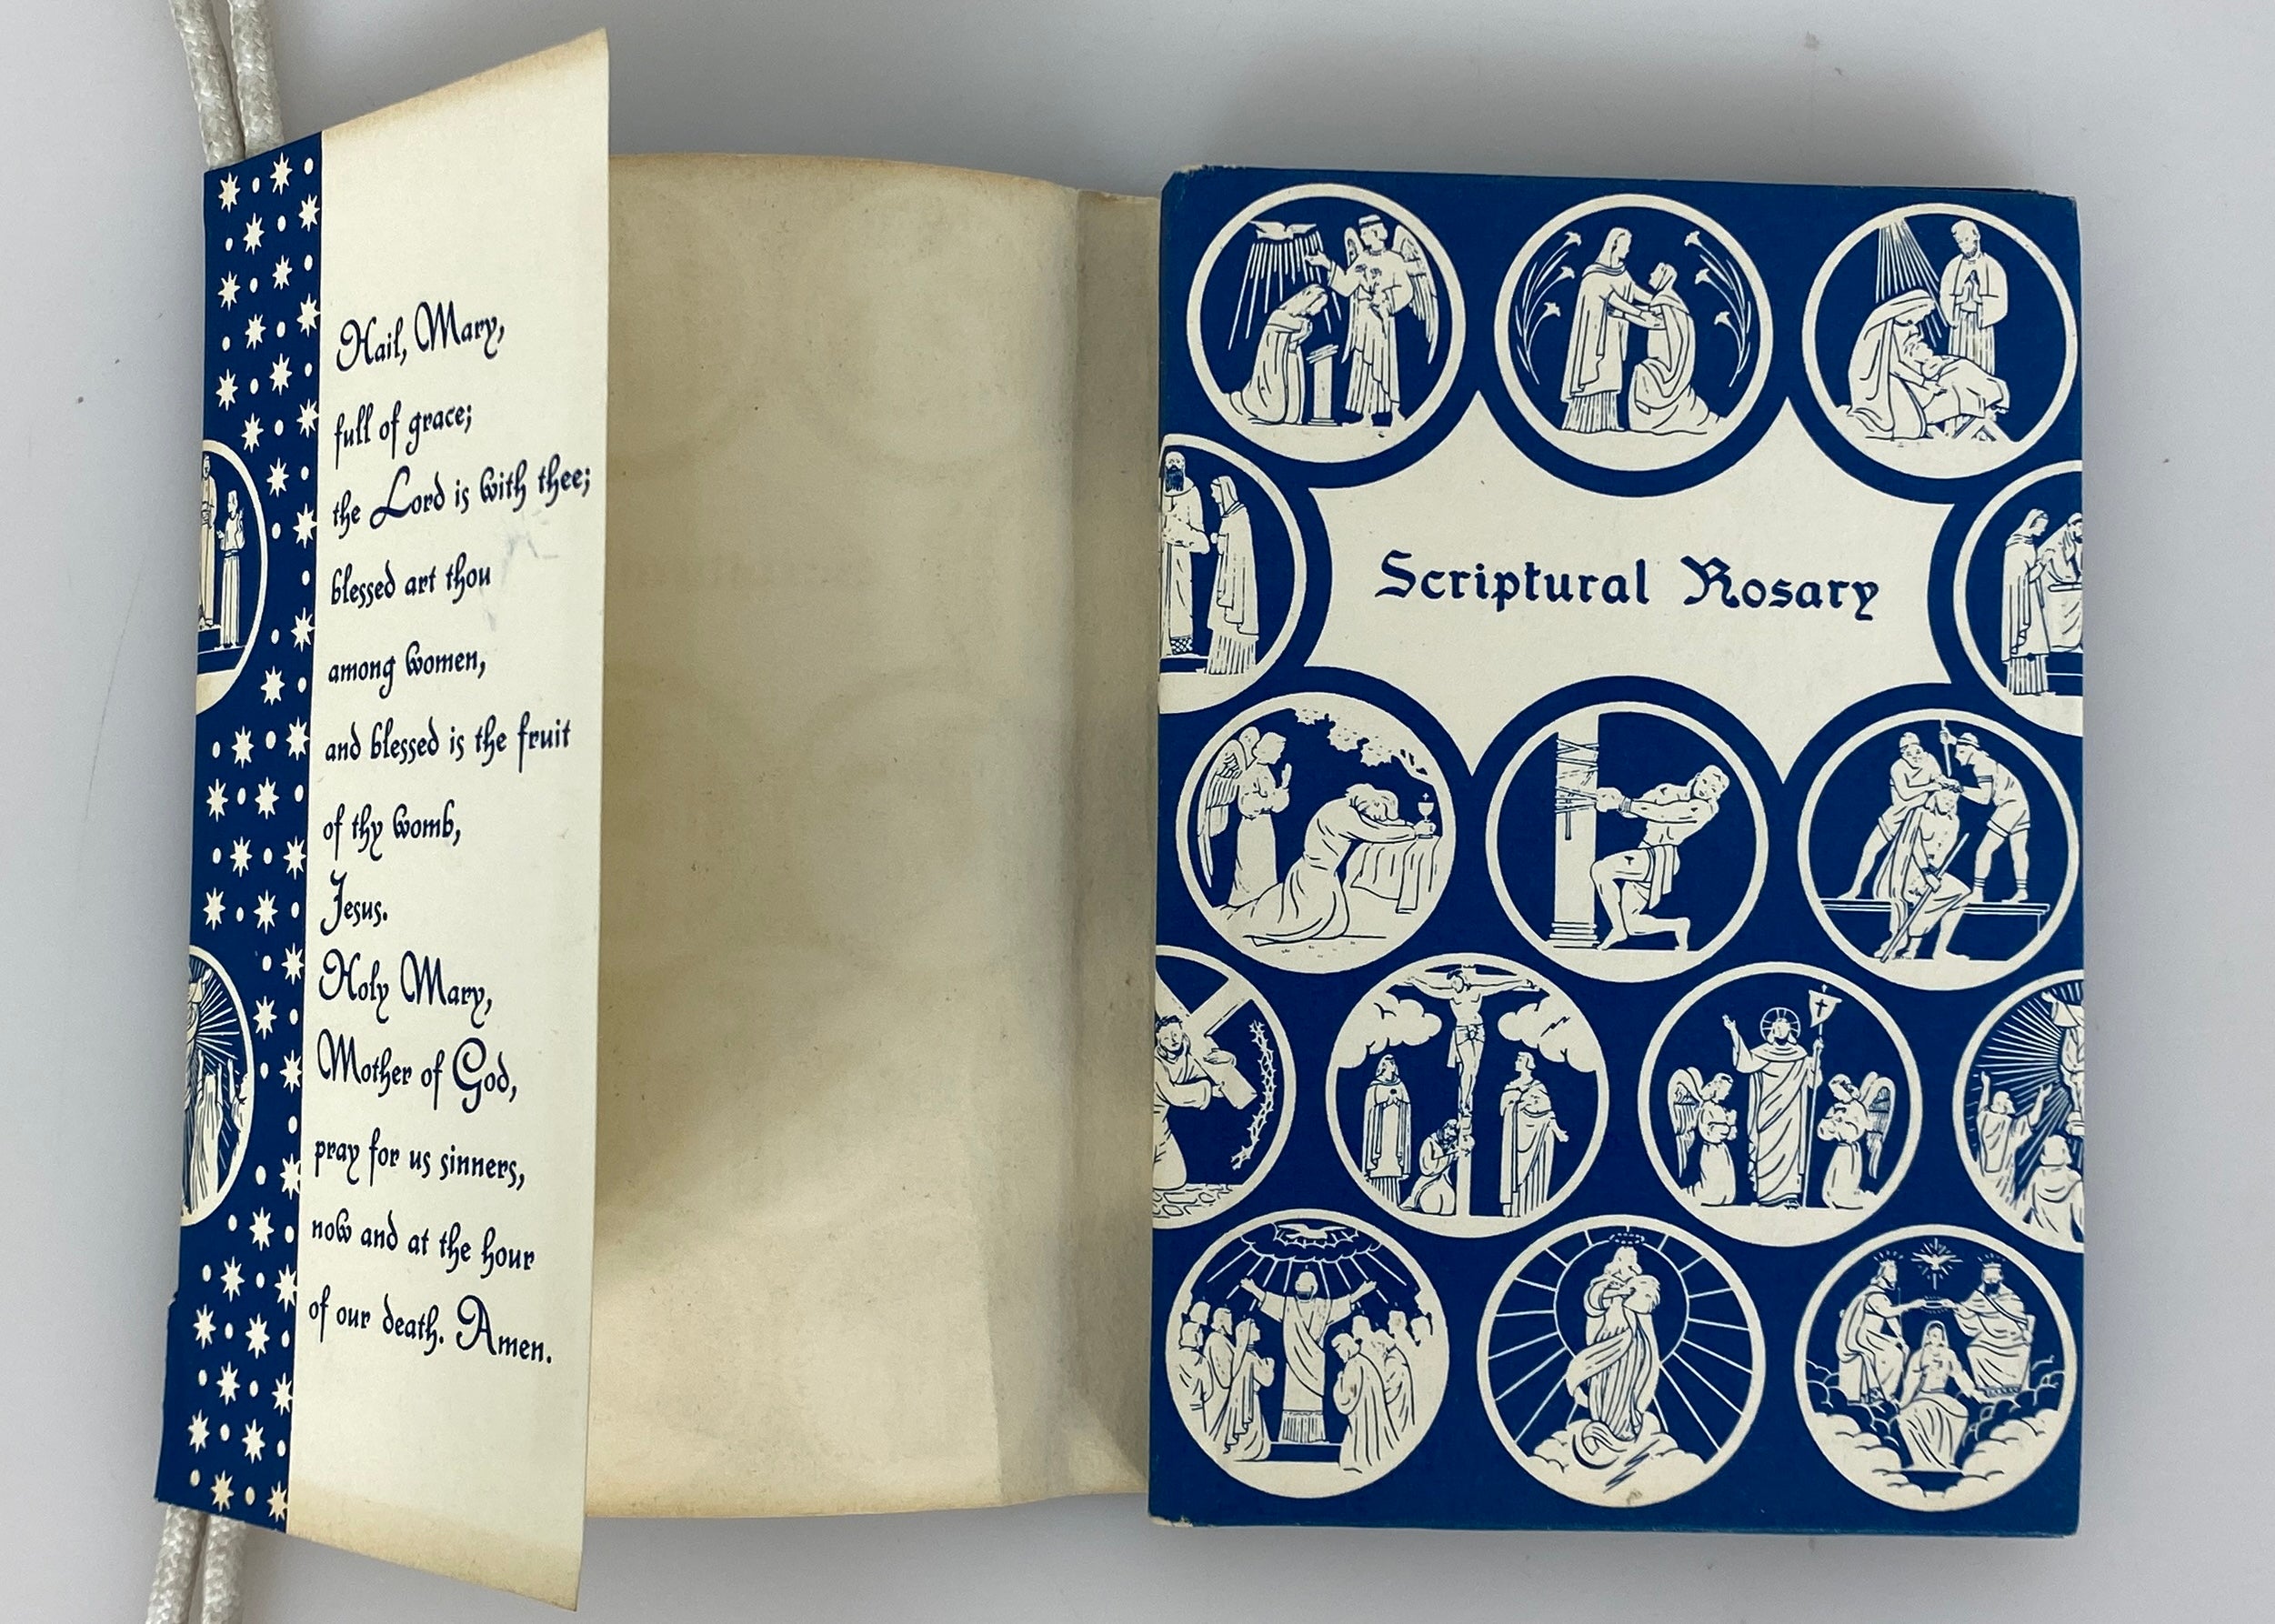 Hail, Mary,
full of grace;
the Lord is with thee;
blessed art thou
among women,
and blessed is the fruit
of thy womb,
Jesus.
Holy Mary,
Mother of God,
pray for us sinners,
now and at the hour
of our death. Amen.
Scriptural Rosary